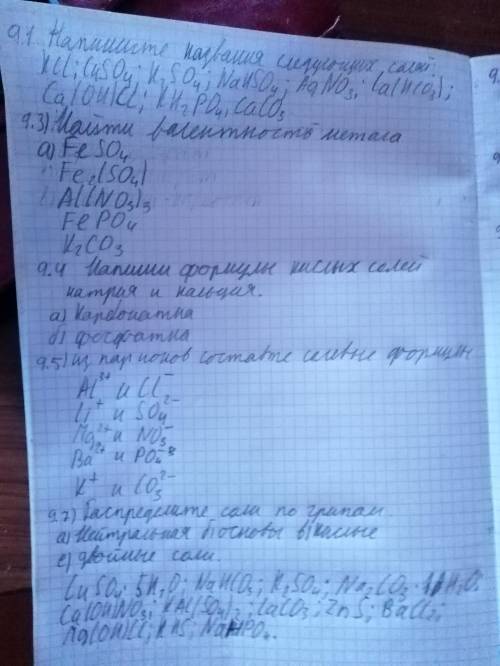 9.1. Напишите названия следующих солей:
KCl; CuSO4; K2SO4; NaHSO4; AgNO3; Ca(HCO3);
Ca(OH)Cl; KH2PO4, CaCO3
9.3) Найти валентность метала
а) FeSO4
Fe2(SO4)
Al(NO3)3
FePO4
K2CO3
9.4 Напиши формулы кислых солей
натрия и кальция.
а) Карбонатна
б) фосфатна
9.5) из пар ионов составте солевые формулы
Al3+ и Cl-
Li+ и SO4 2-
Mg2+ и NO3-
Ba2+ и PO4-3
K+ и CO3 2-
9.7) Распределите соли по групам
а) Нейтральная б) основы в) кислые
е) двойные соли.
CuSO4 · 5H2O; NaHCO3; K2SO4; Na2CO3 · H2O;
Ca(OH)NO3; KAl(SO4)2; CaCO3; ZnS; BaCl2;
Mg(OH)Cl; KHS; NaHPO4.